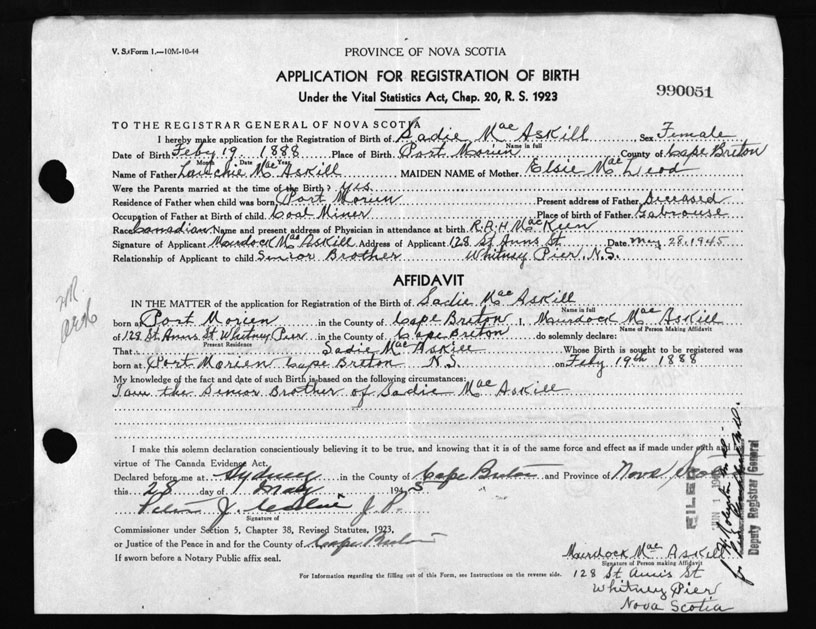 V. S. Form 1.—10M-10-44
PROVINCE OF NOVA SCOTIA
APPLICATION FOR REGISTRATION OF BIRTH
Under the Vital Statistics Act, Chap. 20, R. S. 1923
990051
TO THE REGISTRAR GENERAL OF NOVA SCOTIA
I hereby make application for the Registration of Birth of Sadie MacAskill Sex Female
Name in full
Date of Birth Feby 19 1888 Place of Birth Port Morien County of Cape Breton
Month Date Year
Name of Father Lauchie MacAskill MAIDEN NAME of Mother Elsie MacLeod
Were the Parents married at the time of the Birth? yes
Residence of Father when child was born, Port Morien Present address of Father, Deceased
Occupation of Father at Birth of child. Coal Miner Place of birth of Father. Gabrouse
Race Canadian Name and present address of Physician in attendance at birth. R.A.H MacKeen
Signature of Applicant Murdock MacAskill Address of Applicant 128 St Anns St. Date May 28, 1945
Relationship of Applicant to child Senior Brother Whitney Pier, N.S.
AFFIDAVIT
IN THE MATTER of the application for Registration of the Birth of Sadie MacAskill
Name in full
born at Port Morien in the County of Cape Breton I, Murdock MacAskill
Name of Person Making Affidavit
of 128 St Anns St Whitney Pier in the County of Cape Breton do solemnly declare:
Present Residence
That Sadie MacAskill Whose Birth is sought to be registered was
born at Port Morien Cape Breton N.S. on Feby 19th 1888
My knowledge of the fact and date of such Birth is based on the following circumstances:
I am the Senior Brother of Sadie MacAskill
I make this solemn declaration conscientiously believing it to be true, and knowing that it is of the same force and effect as if made under oath and by
virtue of The Canada Evidence Act.
Declared before me at Sydney in the County of Cape Breton and Province of Nova Scotia
this 28 day of May 1945
J. P.
Signature of
Commissioner under Section 5, Chapter 38, Revised Statutes, 1923,
or Justice of the Peace in and for the County of Cape Breton
If sworn before a Notary Public affix seal.
Murdock MacAskill
Signature of Person making Affidavit
128 St Anns St
Whitney Pier
Nova Scotia
For Information regarding the filling out of this Form, see Instructions on the reverse side.
FILED
JUN 1
Deputy Registrar General